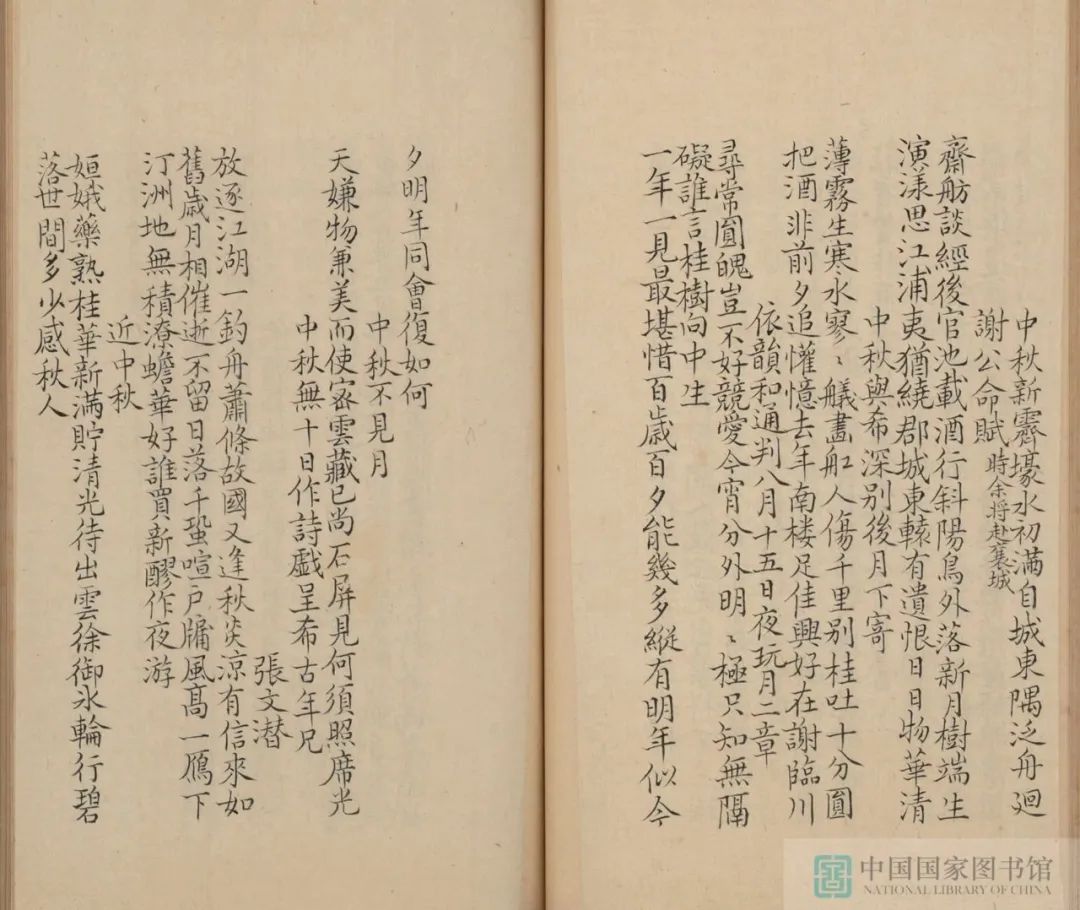 中秋新霽壕水初滿自城東隅泛舟廻
謝公命賦 時余將赴襄城
齋舫談經後官池載酒行斜陽鳥外落新月樹端生
演漾思江浦夷猶繞郡城東轅有遺恨日日物華清
中秋與希深别後月下寄
薄霧生寒水寥〻艤畫舡人傷千里别桂吐十分圓
把酒非前夕追懽憶去年南楼足佳興好在謝臨川
依韻和通判八月十五日夜玩月二章
尋常圓魄豈不好競愛今宵分外明〻極只知無隔
礙誰言桂樹向中生
一年一見最堪惜百歲百夕能幾多縱有明年似今
夕明年同會復如何
中秋不見月
天嫌物兼美而使密雲藏已尚石屏見何須照席光
中秋無十日作詩戲呈希古年兄
張文潜
放逐江湖一釣舟蕭條故國又逢秋炎涼有信來如
舊歲月相催逝不留日落千蛩喧戸牖風高一鴈下
汀洲地無積潦蟾華好誰買新醪作夜游
近中秋
姮娥藥熟桂華新滿貯清光待出雲徐御氷輪行碧
落世間多少感秋人
中国国家图书馆
NATIONAL LIBRARY OF CHINA